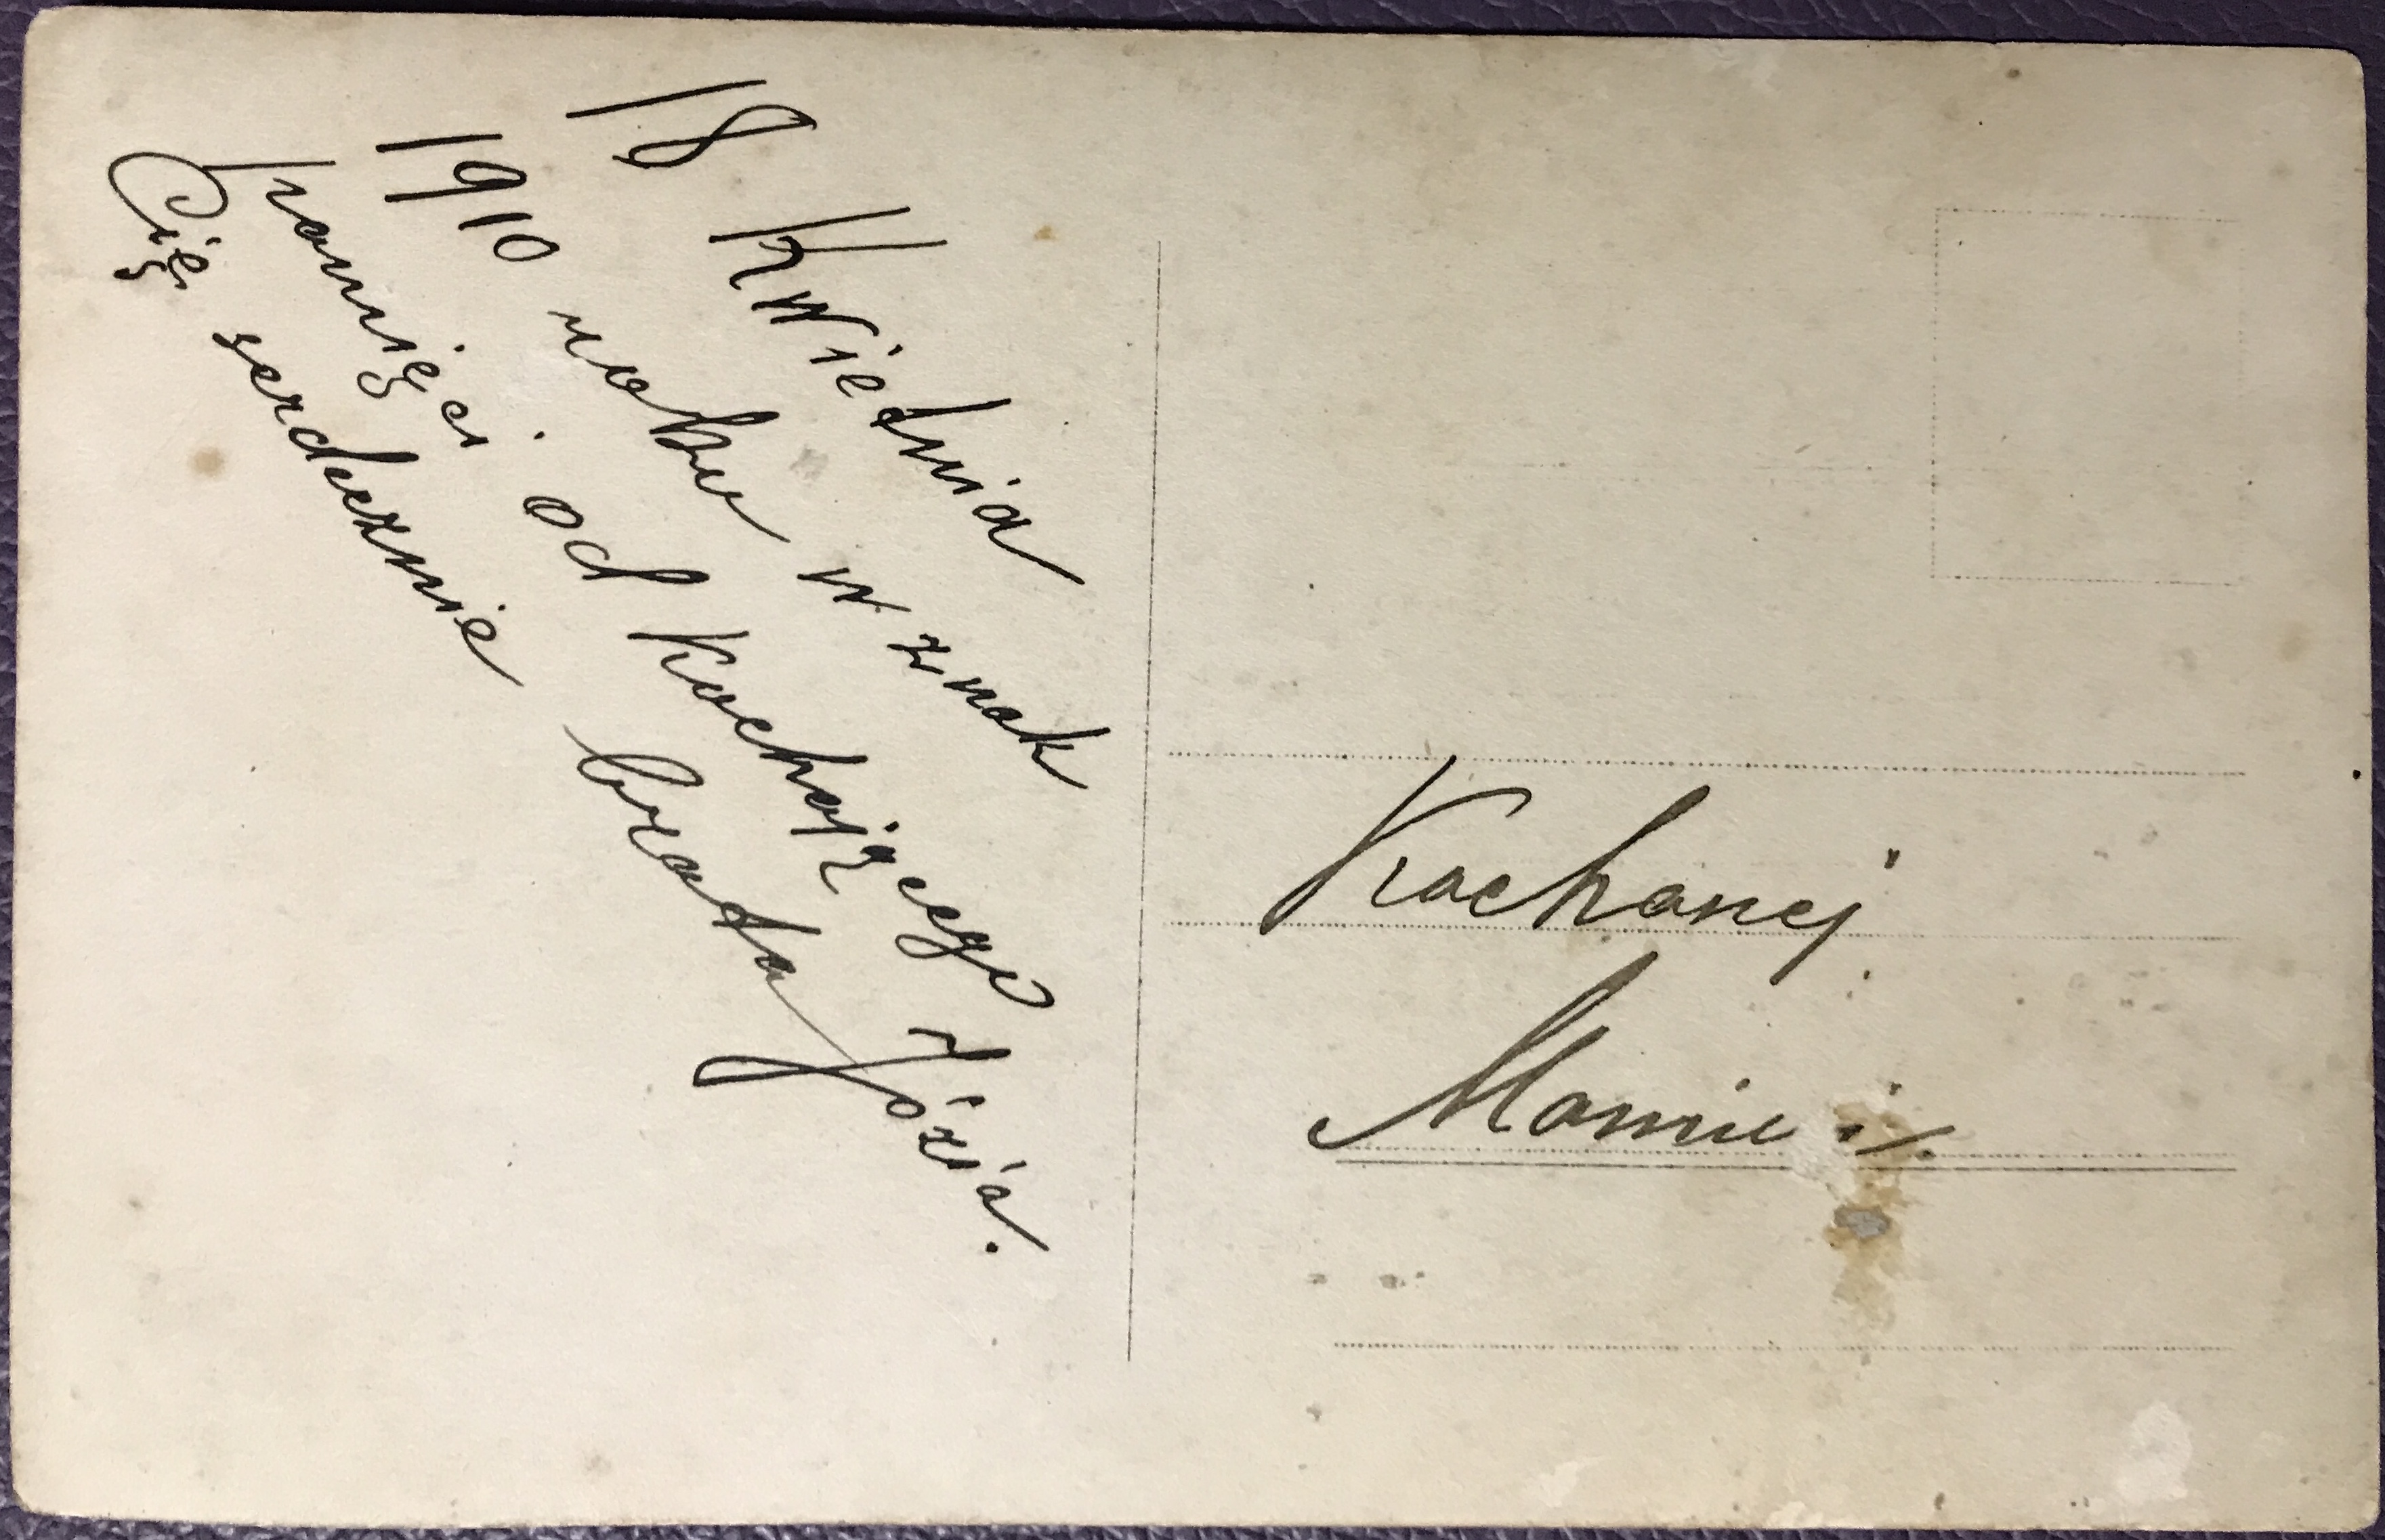 18 Kwiednia
1910 roku w znak
pamięci od Kochającego
Cię serdecznie brata Józia.
Kochanej
Mamie